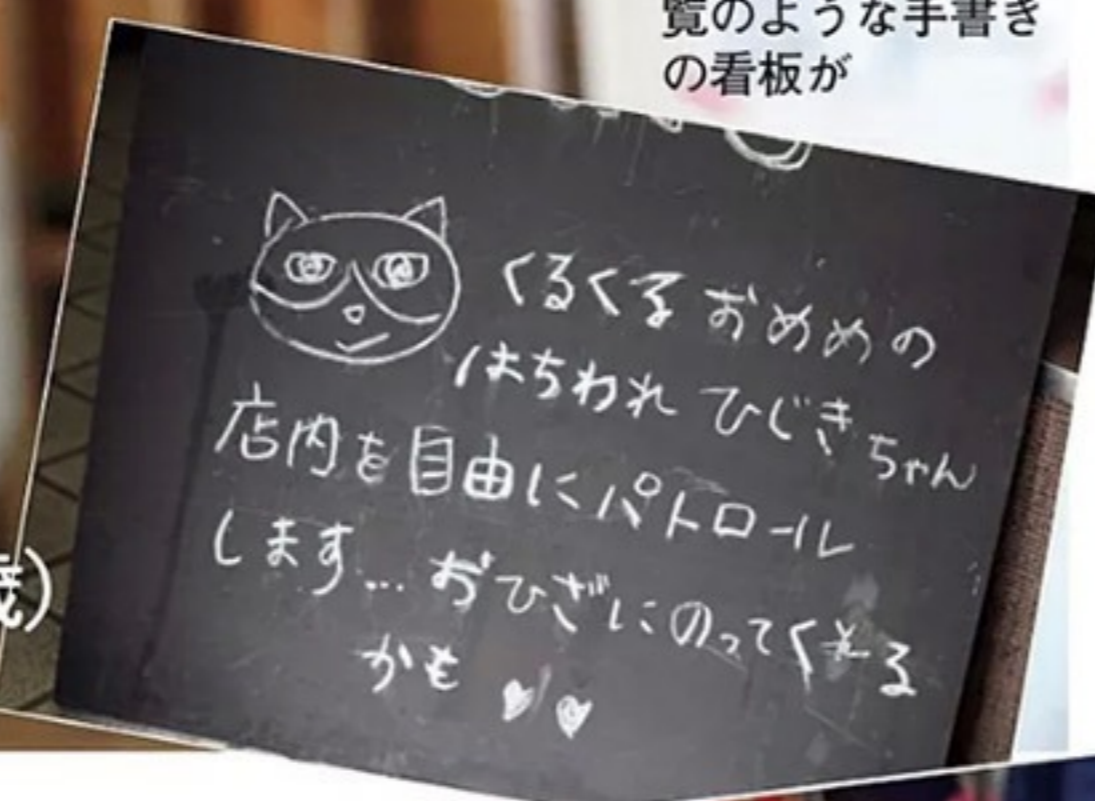 覧のような手書き
の看板が
くるくるおめめの
はちわれ ひじきちゃん
店内を自由にパトロール
します… おひざにのってくる
かも ♥♥
歳)